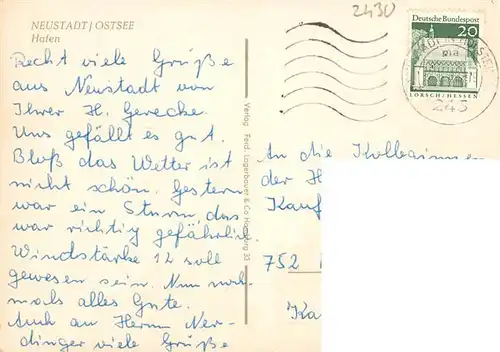 NEUSTADT / OSTSEE
Hafen
2430
Deutsche Bundespost
20
LORSCH/HESSEN
243
Recht viele Grüße
aus Neustadt von
Ihrer H. Gerecke.
Uns gefällt es gut.
Bloß das Wetter ist
nicht schön. Gestern
war ein Sturm, das
war richtig gefährlich.
Windstärke 12 soll
gewesen sein. Nun noch-
mals alles Gute.
Auch an Herrn Ner-
dinger viele Grüße
Verlag Ferd. Lagerbauer & Co Hamburg 33
An die Kolleginnen
der H
Kauf
752
Ka